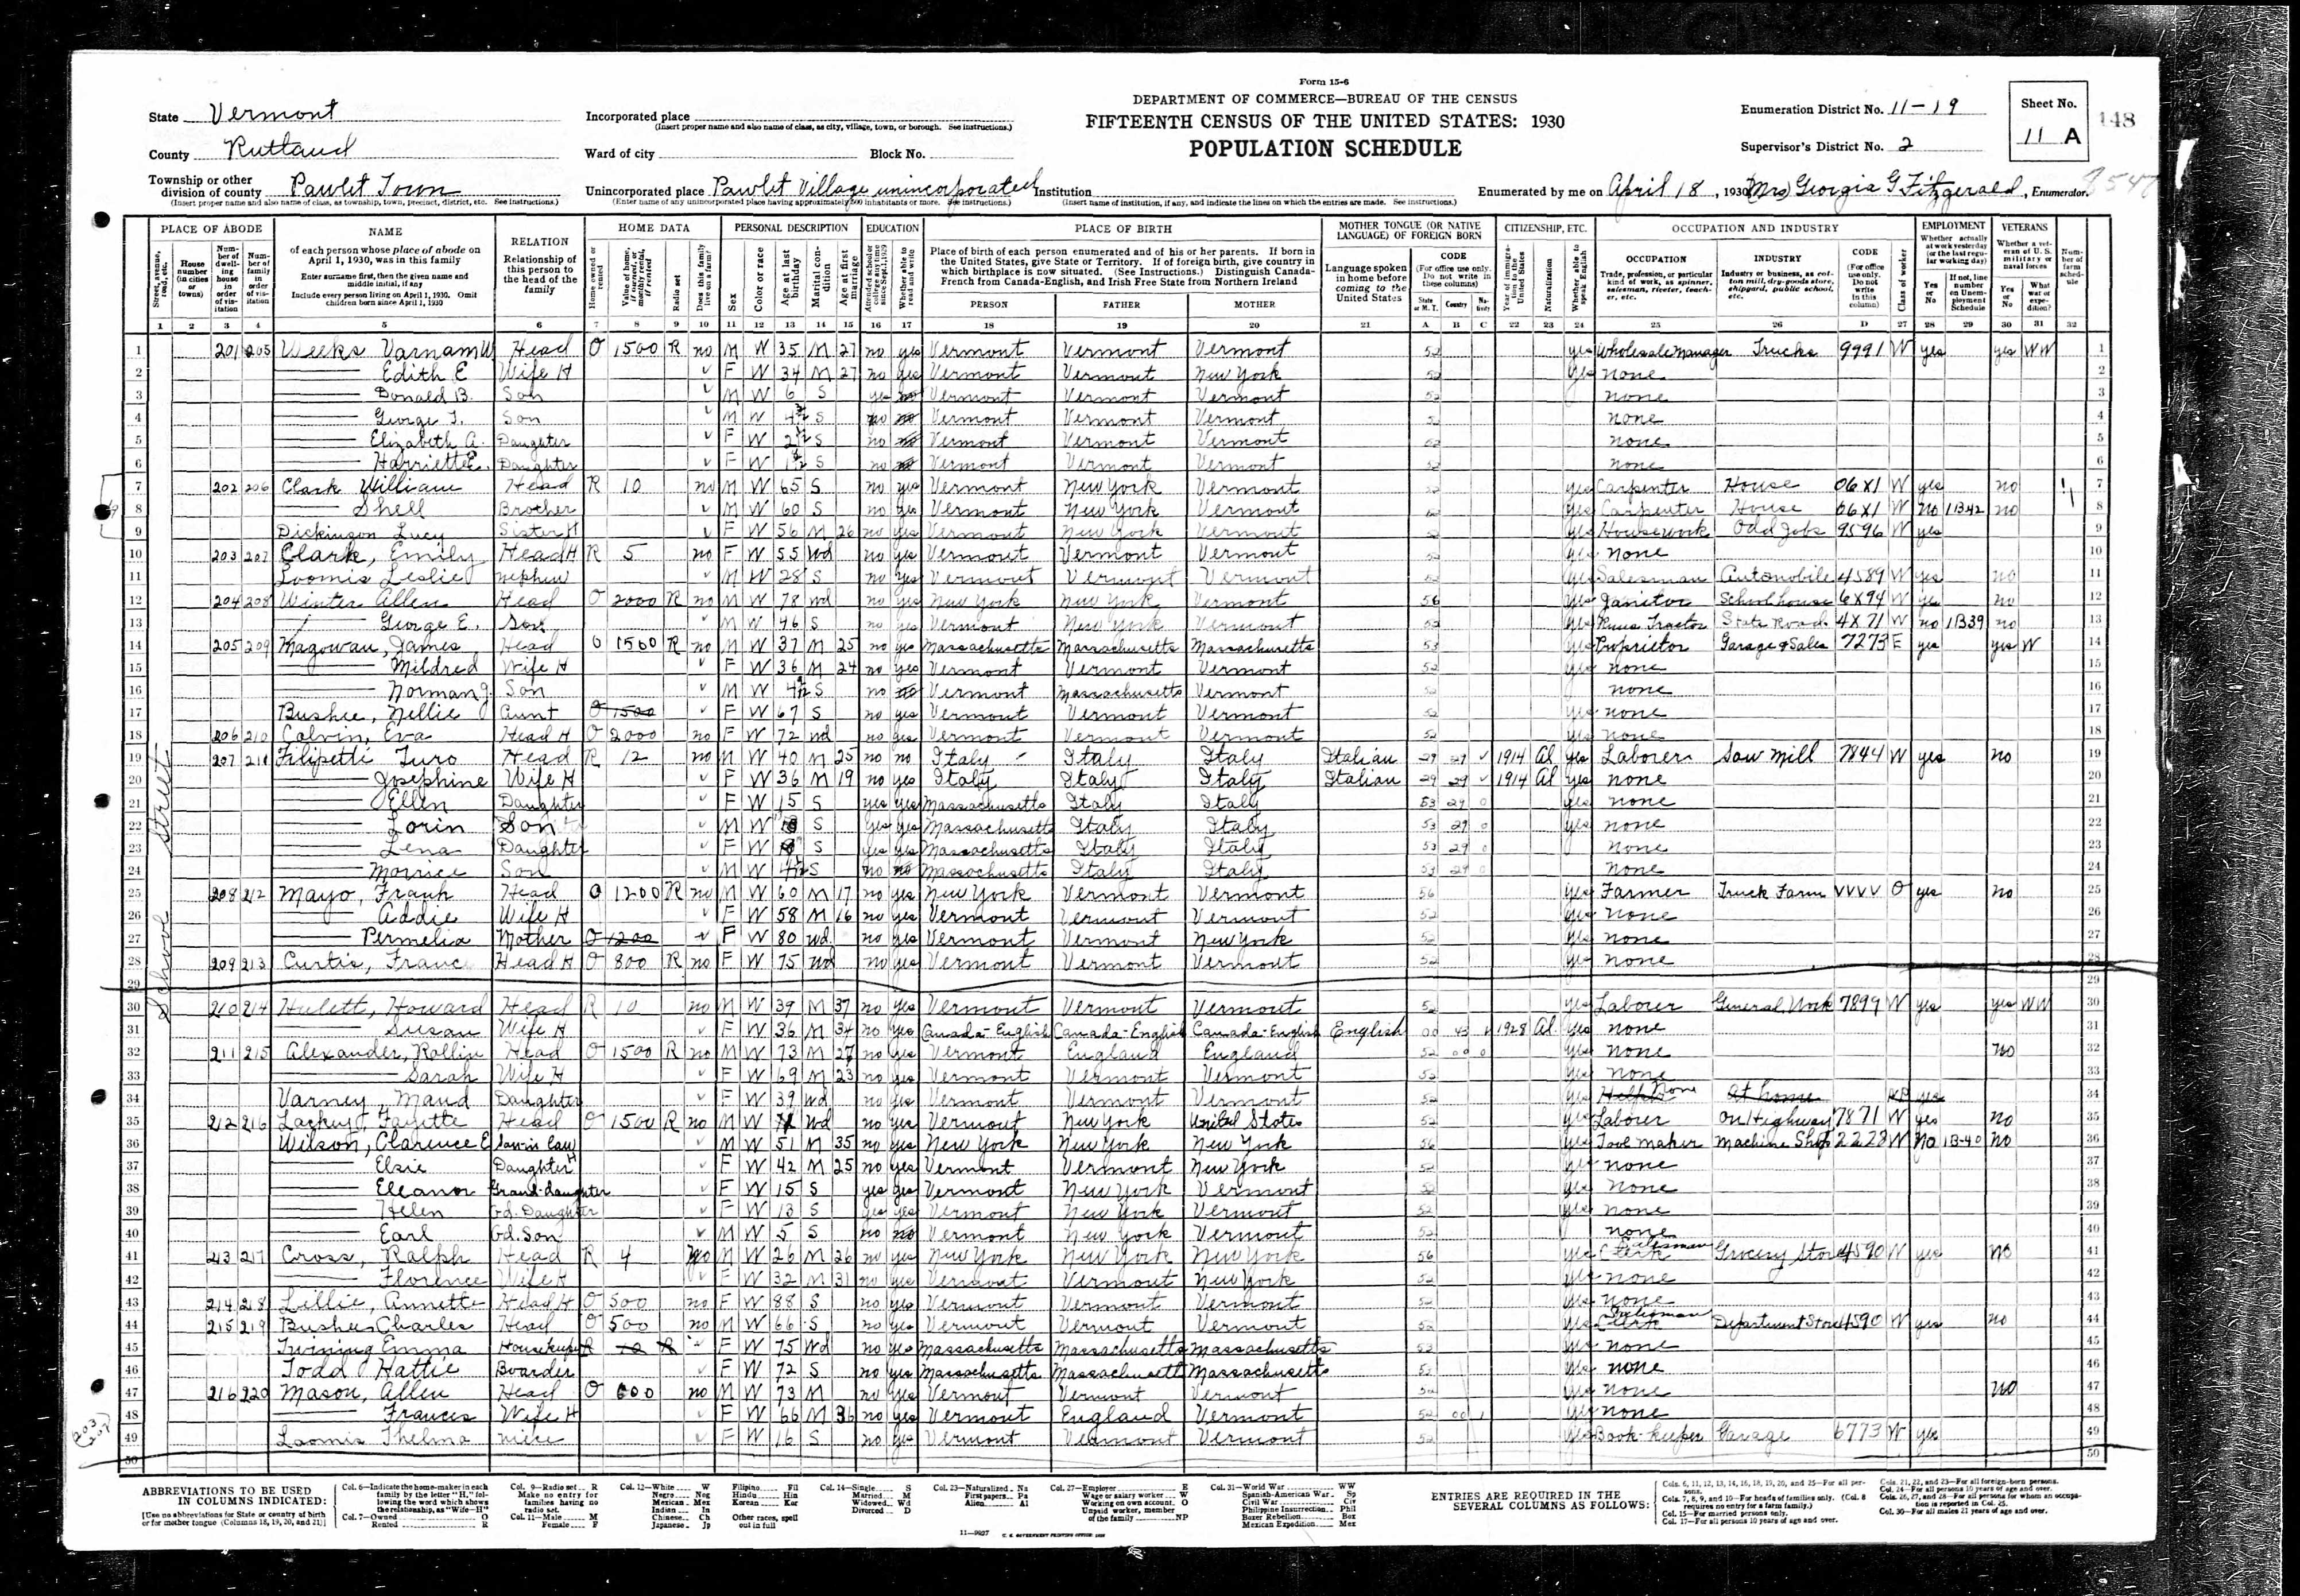 Form 15-6
DEPARTMENT OF COMMERCE—BUREAU OF THE CENSUS
FIFTEENTH CENSUS OF THE UNITED STATES: 1930
POPULATION SCHEDULE
State Vermont
County Rutland
Township or other division of county Pawlet Town
(Insert proper name and also name of class, as township, town, precinct, district, etc. See instructions.)
Incorporated place
(Insert proper name and also name of class, as city, village, town, or borough. See instructions.)
Ward of city Block No.
Unincorporated place Pawlet Village unincorporated
(Enter name of any unincorporated place having approximately 500 inhabitants or more. See instructions.)
Institution
(Insert name of institution, if any, and indicate the lines on which the entries are made. See instructions.)
Enumeration District No. 11-19
Supervisor's District No. 2
Sheet No. 11 A
148
Enumerated by me on April 18, 1930, (Mrs) Georgia G Fitzgerald, Enumerator.
PLACE OF ABODE NAME RELATION HOME DATA PERSONAL DESCRIPTION EDUCATION PLACE OF BIRTH MOTHER TONGUE (OR NATIVE LANGUAGE) OF FOREIGN BORN CITIZENSHIP, ETC. OCCUPATION AND INDUSTRY EMPLOYMENT VETERANS
of each person whose place of abode on April 1, 1930, was in this family
Enter surname first, then the given name and middle initial, if any
Include every person living on April 1, 1930. Omit children born since April 1, 1930
Relationship of this person to the head of the family
Place of birth of each person enumerated and of his or her parents. If born in the United States, give State or Territory. If of foreign birth, give country in which birthplace is now situated. (See Instructions.) Distinguish Canada-French from Canada-English, and Irish Free State from Northern Ireland
PERSON FATHER MOTHER
Language spoken in home before coming to the United States
CODE (For office use only. Do not write in these columns)
1 2 3 4 5 6 7 8 9 10 11 12 13 14 15 16 17 18 19 20 21 A B C 22 23 24 25 26 D 27 28 29 30 31 32
School Street
1 201 205 Weeks Varnam W Head O 1500 R no M W 35 M 27 no yes Vermont Vermont Vermont 52 yes Wholesale Manager Trucks 9991 W yes yes WW 1
2 Edith E Wife H F W 34 M 27 no yes Vermont Vermont New York 52 yes none 2
3 Donald B. Son M W 6 S yes no Vermont Vermont Vermont 52 none 3
4 George Son M W S no no Vermont Vermont Vermont 52 none 4
5 Elizabeth A. Daughter F W S no no Vermont Vermont Vermont 52 none 5
6 Harriette Daughter F W S no no Vermont Vermont Vermont 52 none 6
7 202 206 Clark William Head R 10 no M W 65 S no yes Vermont New York Vermont 52 yes Carpenter House 06X1 W yes no 7
8 Shell Brother M W 60 S no yes Vermont New York Vermont 52 yes Carpenter House 06X1 W no 1B42 no 8
9 Dickinson Lucy Sister H F W 56 M 26 no yes Vermont New York Vermont 52 yes Housework Odd Jobs 9596 W yes 9
10 203 207 Clark, Emily Head H R 5 no F W 55 Wd no yes Vermont Vermont Vermont 52 yes none 10
11 Loomis Leslie nephew M W 28 S no yes Vermont Vermont Vermont 52 yes Salesman Automobile 4589 W yes no 11
12 204 208 Winter Allen Head O 2000 R no M W 78 Wd no yes New York New York Vermont 56 yes Janitor Schoolhouse 6X94 W yes no 12
13 George E. Son M W 46 S no yes Vermont New York Vermont 52 yes Runs Tractor State Road 4X71 W no 1B39 no 13
14 205 209 Magowan, James Head O 1500 R no M W 37 M 25 no yes Massachusetts Massachusetts Massachusetts 53 yes Proprietor Garage & Sales 7273 E yes yes W 14
15 Mildred Wife H F W 36 M 24 no yes Vermont Vermont Vermont 52 yes none 15
16 Norman J. Son M W S no no Vermont Massachusetts Vermont 52 none 16
17 Bushee, Nellie Aunt O 1500 F W 67 S no yes Vermont Vermont Vermont 52 yes none 17
18 206 210 Colvin, Eva Head H O 2000 no F W 72 Wd no yes Vermont Vermont Vermont 52 yes none 18
19 207 211 Filipetti Turo Head R 12 no M W 40 M 25 no no Italy Italy Italy Italian 29 29 1914 Al yes Laborer Saw Mill 7844 W yes no 19
20 Josephine Wife H F W 36 M 19 no yes Italy Italy Italy Italian 29 29 1914 Al yes none 20
21 Ellen Daughter F W 15 S yes yes Massachusetts Italy Italy 53 29 0 yes none 21
22 Lorin Son M W S yes yes Massachusetts Italy Italy 53 29 0 yes none 22
23 Lena Daughter F W S yes yes Massachusetts Italy Italy 53 29 0 none 23
24 Morrice Son M W S no no Massachusetts Italy Italy 53 29 0 none 24
25 208 212 Mayo, Frank Head O 1200 R no M W 60 M 17 no yes New York Vermont Vermont 56 yes Farmer Truck Farm VVVV O yes no 25
26 Addie Wife H F W 58 M 16 no yes Vermont Vermont Vermont 52 yes none 26
27 Permelia Mother O 1200 F W 80 Wd no yes Vermont Vermont New York 52 yes none 27
28 209 213 Curtis, France Head H O 800 R no F W 75 Wd no yes Vermont Vermont Vermont 52 yes none 28
29 29
30 210 214 Hulett, Howard Head R 10 no M W 39 M 37 no yes Vermont Vermont Vermont 52 yes Laborer General Work 7899 W yes yes WW 30
31 Susan Wife H F W 36 M 34 no yes Canada-English Canada-English Canada-English English 00 43 1928 Al yes none 31
32 211 215 Alexander, Rollin Head O 1500 R no M W 73 M 27 no yes Vermont England England 52 00 0 yes none no 32
33 Sarah Wife H F W 69 M 23 no yes Vermont Vermont Vermont 52 yes none 33
34 Varney, Maud Daughter F W 39 Wd no yes Vermont Vermont Vermont 52 yes none At home yes 34
35 212 216 Lackey, Fayette Head O 1500 R no M W Wd no yes Vermont New York United States 52 yes Laborer On Highway 7871 W yes no 35
36 Wilson, Clarence E Son in law M W 51 M 35 no yes New York New York New York 56 yes Tool maker Machine Shop 2228 W no 1B-40 no 36
37 Elsie Daughter H F W 42 M 25 no yes Vermont Vermont New York 52 yes none 37
38 Eleanor Grand-daughter F W 15 S yes yes Vermont New York Vermont 52 yes none 38
39 Helen Gd. Daughter F W 13 S yes yes Vermont New York Vermont 52 yes none 39
40 Earl Gd. Son M W 5 S no no Vermont New York Vermont 52 none 40
41 213 217 Cross, Ralph Head R 4 no M W 26 M 26 no yes New York New York New York 56 yes Clerk Salesman Grocery Store 4590 W yes no 41
42 Florence Wife H F W 32 M 31 no yes Vermont Vermont New York 52 yes none 42
43 214 218 Lillie, Annette Head H O 500 no F W 88 S no yes Vermont Vermont Vermont 52 yes none 43
44 215 219 Bushee Charles Head O 500 no M W 66 S no yes Vermont Vermont Vermont 52 yes Clerk Salesman Department Store 4590 W yes no 44
45 Twining Emma Housekeeper F W 75 Wd no yes Massachusetts Massachusetts Massachusetts 53 yes none 45
46 Todd Hattie Boarder F W 72 S no yes Massachusetts Massachusetts Massachusetts 53 yes none 46
47 216 220 Mason, Allen Head O 600 no M W 73 M no yes Vermont Vermont Vermont 52 yes none no 47
48 Frances Wife H F W 66 M 36 no yes Vermont England Vermont 52 00 1 yes none 48
49 Loomis Thelma niece F W 16 S no yes Vermont Vermont Vermont 52 yes Book-keeper Garage 6773 W yes 49
50 50
ABBREVIATIONS TO BE USED IN COLUMNS INDICATED:
[Use no abbreviations for State or country of birth or for mother tongue (Columns 18, 19, 20, and 21)]
Col. 6—Indicate the home-maker in each family by the letter "H," following the word which shows the relationship, as "Wife—H"
Col. 7—Owned O Rented R
Col. 9—Radio set R Make no entry for families having no radio set.
Col. 11—Male M Female F
Col. 12—White W Negro Neg Mexican Mex Indian In Chinese Ch Japanese Jp Filipino Fil Hindu Hin Korean Kor Other races, spell out in full
Col. 14—Single S Married M Widowed Wd Divorced D
Col. 23—Naturalized Na First papers Pa Alien Al
Col. 27—Employer E Wage or salary worker W Working on own account O Unpaid worker, member of the family NP
Col. 31—World War WW Spanish-American War Sp Civil War Civ Philippine Insurrection Phil Boxer Rebellion Box Mexican Expedition Mex
ENTRIES ARE REQUIRED IN THE SEVERAL COLUMNS AS FOLLOWS:
Cols. 6, 11, 12, 13, 14, 16, 18, 19, 20, and 25—For all persons.
Cols. 7, 8, 9, and 10—For heads of families only. (Col. 8 requires no entry for a farm family.)
Col. 15—For married persons only.
Col. 17—For all persons 10 years of age and over.
Cols. 21, 22, and 23—For all foreign-born persons.
Col. 24—For all persons 10 years of age and over.
Cols. 26, 27, and 28—For all persons for whom an occupation is reported in Col. 25.
Col. 30—For all males 21 years of age and over.
11—9027 U. S. GOVERNMENT PRINTING OFFICE